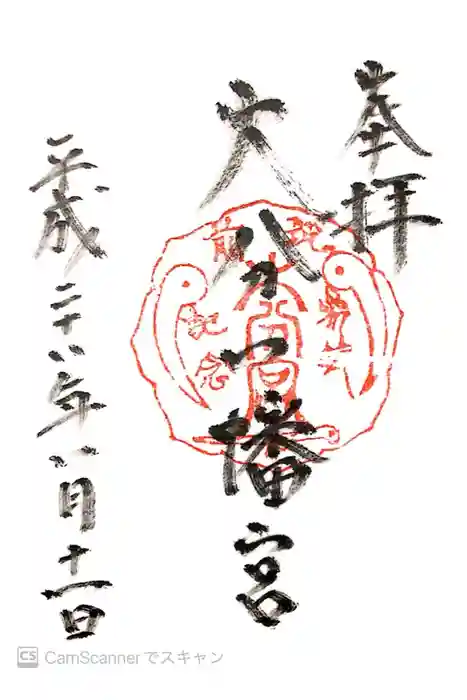 奉拝
大八幡宮
平成二十八年八月十一日
参拝
記念
CS CamScannerでスキャン